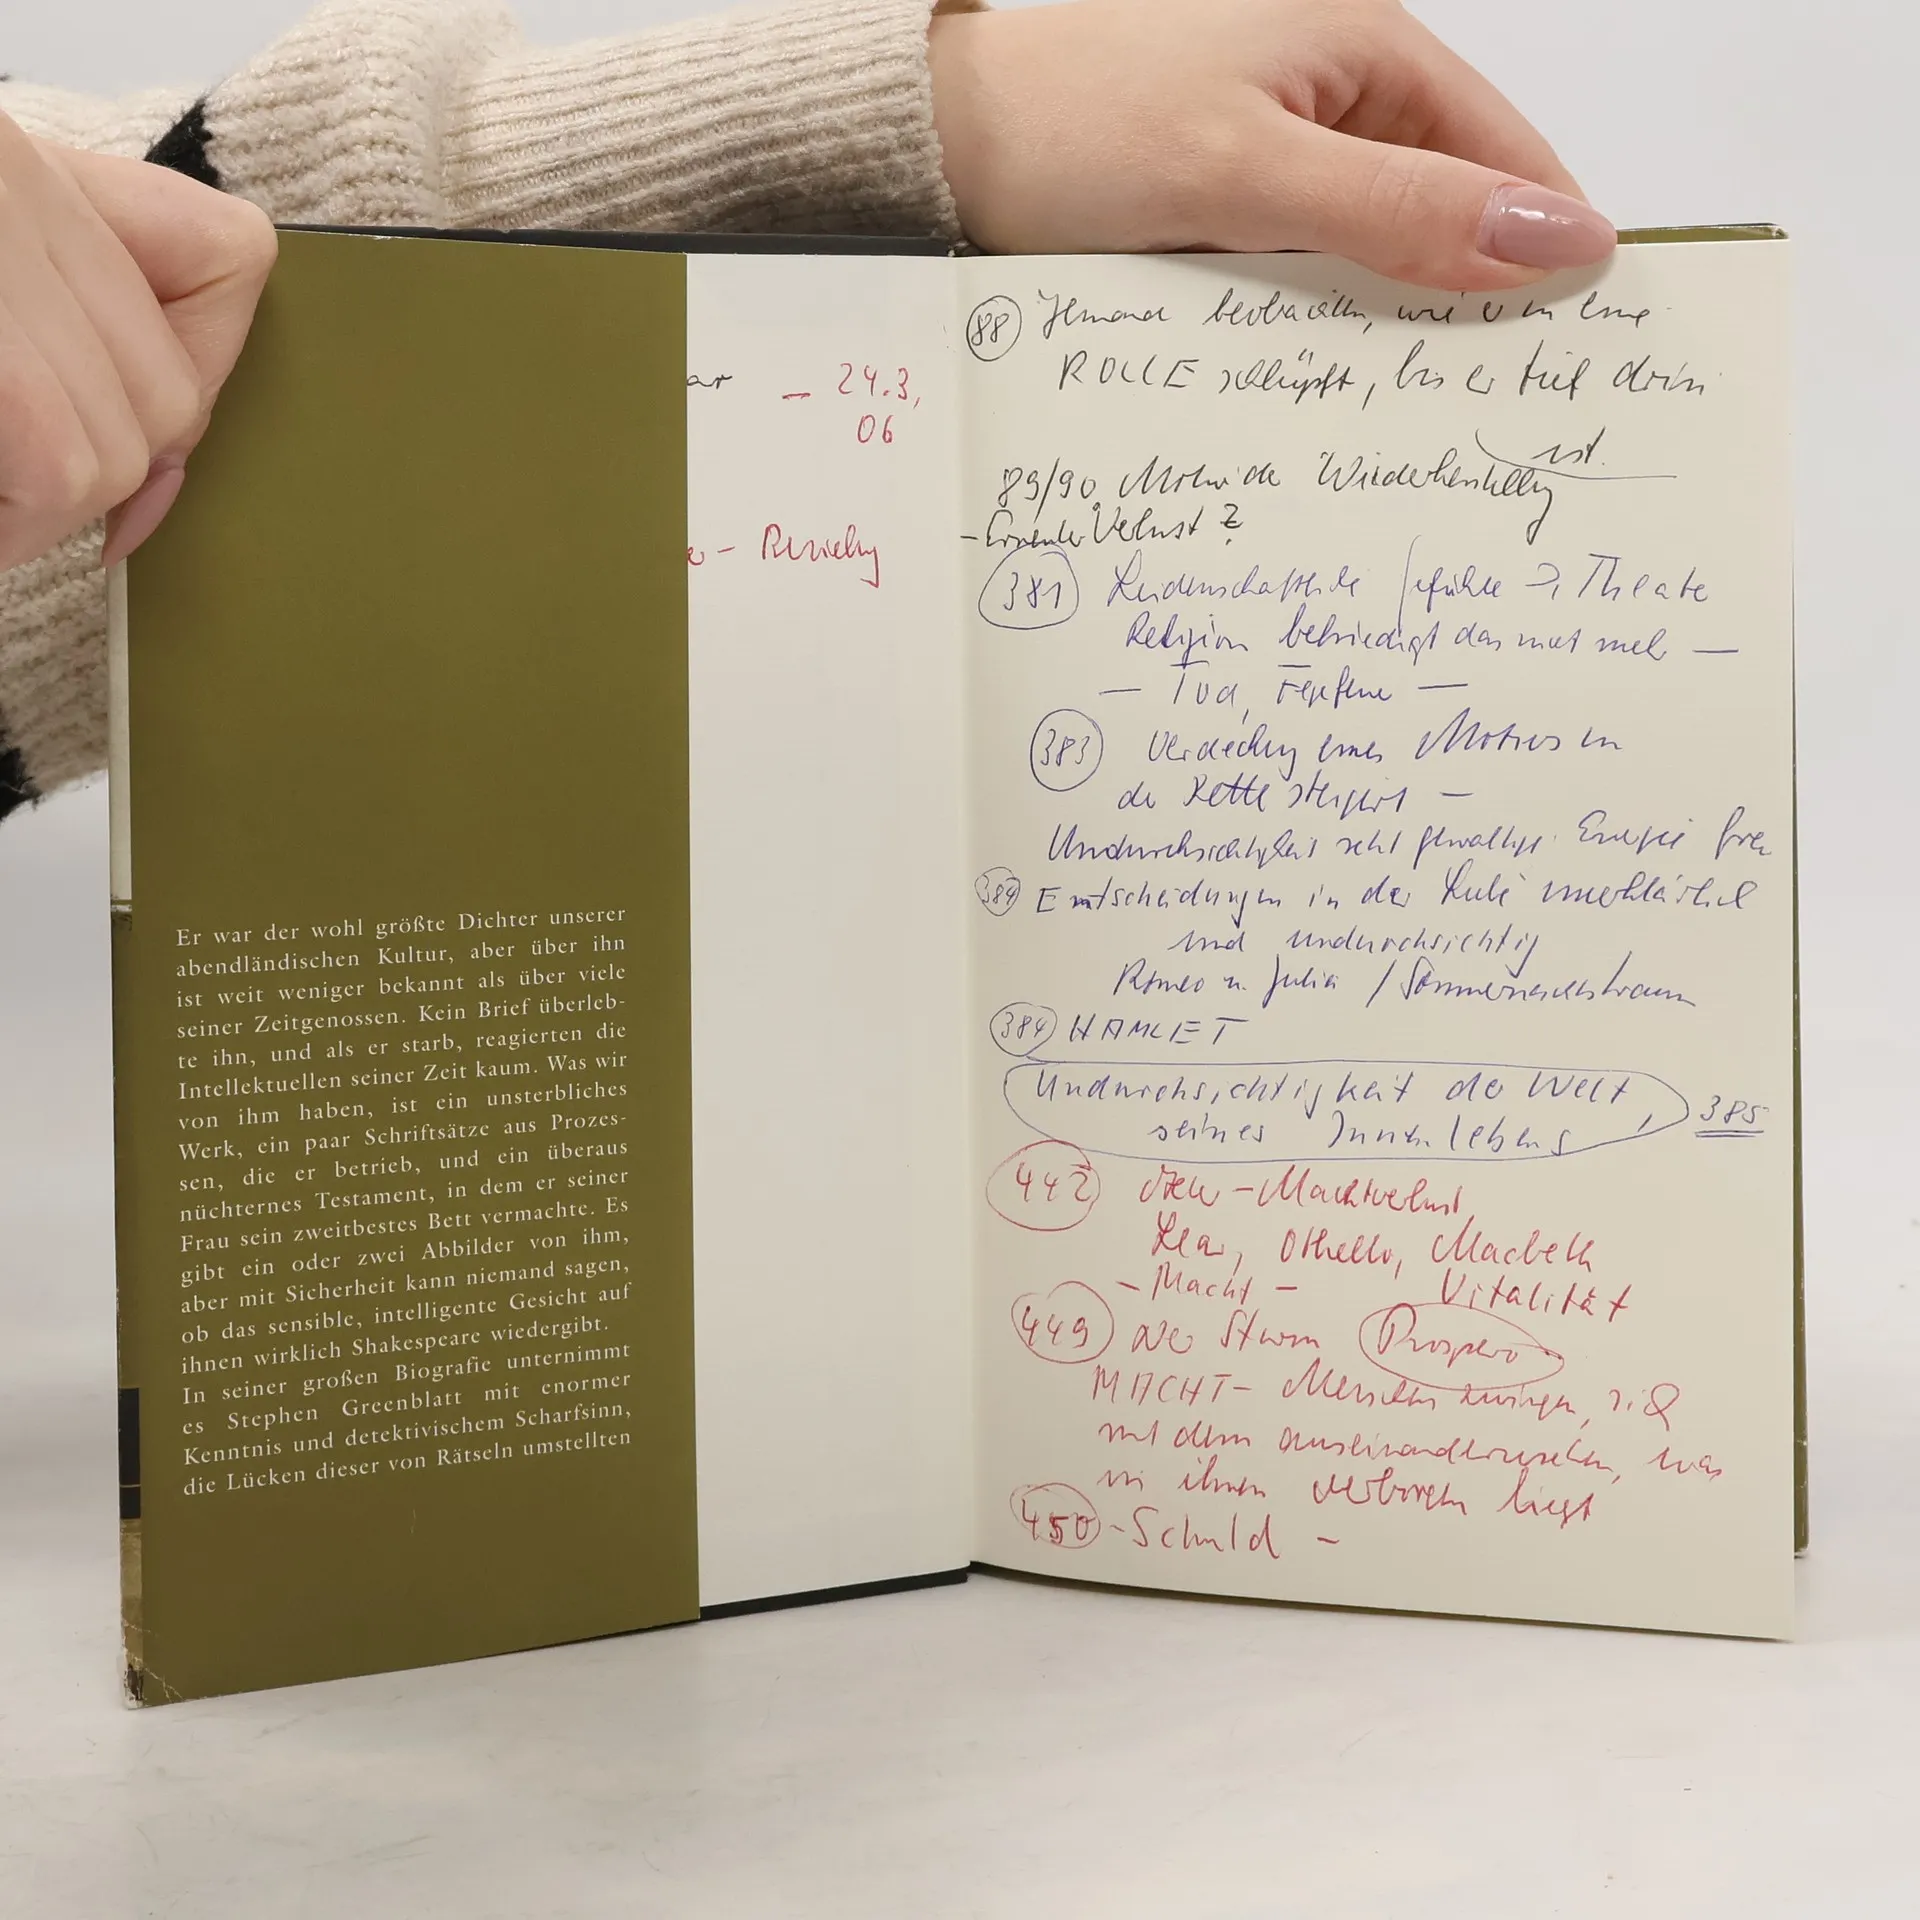 Er war der wohl größte Dichter unserer
abendländischen Kultur, aber über ihn
ist weit weniger bekannt als über viele
seiner Zeitgenossen. Kein Brief überleb-
te ihn, und als er starb, reagierten die
Intellektuellen seiner Zeit kaum. Was wir
von ihm haben, ist ein unsterbliches
Werk, ein paar Schriftsätze aus Prozes-
sen, die er betrieb, und ein überaus
nüchternes Testament, in dem er seiner
Frau sein zweitbestes Bett vermachte. Es
gibt ein oder zwei Abbilder von ihm,
aber mit Sicherheit kann niemand sagen,
ob das sensible, intelligente Gesicht auf
ihnen wirklich Shakespeare wiedergibt.
In seiner großen Biografie unternimmt
es Stephen Greenblatt mit enormer
Kenntnis und detektivischem Scharfsinn,
die Lücken dieser von Rätseln umstellten
ar – 24.3.
06
88 Jemand beobachten, wie er in eine
ROLLE schlüpft, bis er tief drin
ist.
89/90 Motiv der Wiederherstellung
- Erneuter Verlust?
381 Leidenschaftliche Gefühle → Theater
Religion befriedigt das nicht mehr —
— Tod, Fegefeuer —
383 Verdeckung eines Motivs in
der Kette steigert —
Undurchsichtigkeit setzt gewaltige Energie frei
384 Entscheidungen in der Liebe unerklärlich
und undurchsichtig
Romeo u. Julia / Sommernachtstraum
384 HAMLET
Undurchsichtigkeit der Welt,
seines Innenlebens 385
442 Machtverlust
Lear, Othello, Macbeth
- Macht - Vitalität
449 Der Sturm Prospero
MACHT - Menschen zwingen, sich
mit dem auseinanderzusetzen, was
in ihnen verborgen liegt
450 - Schuld -